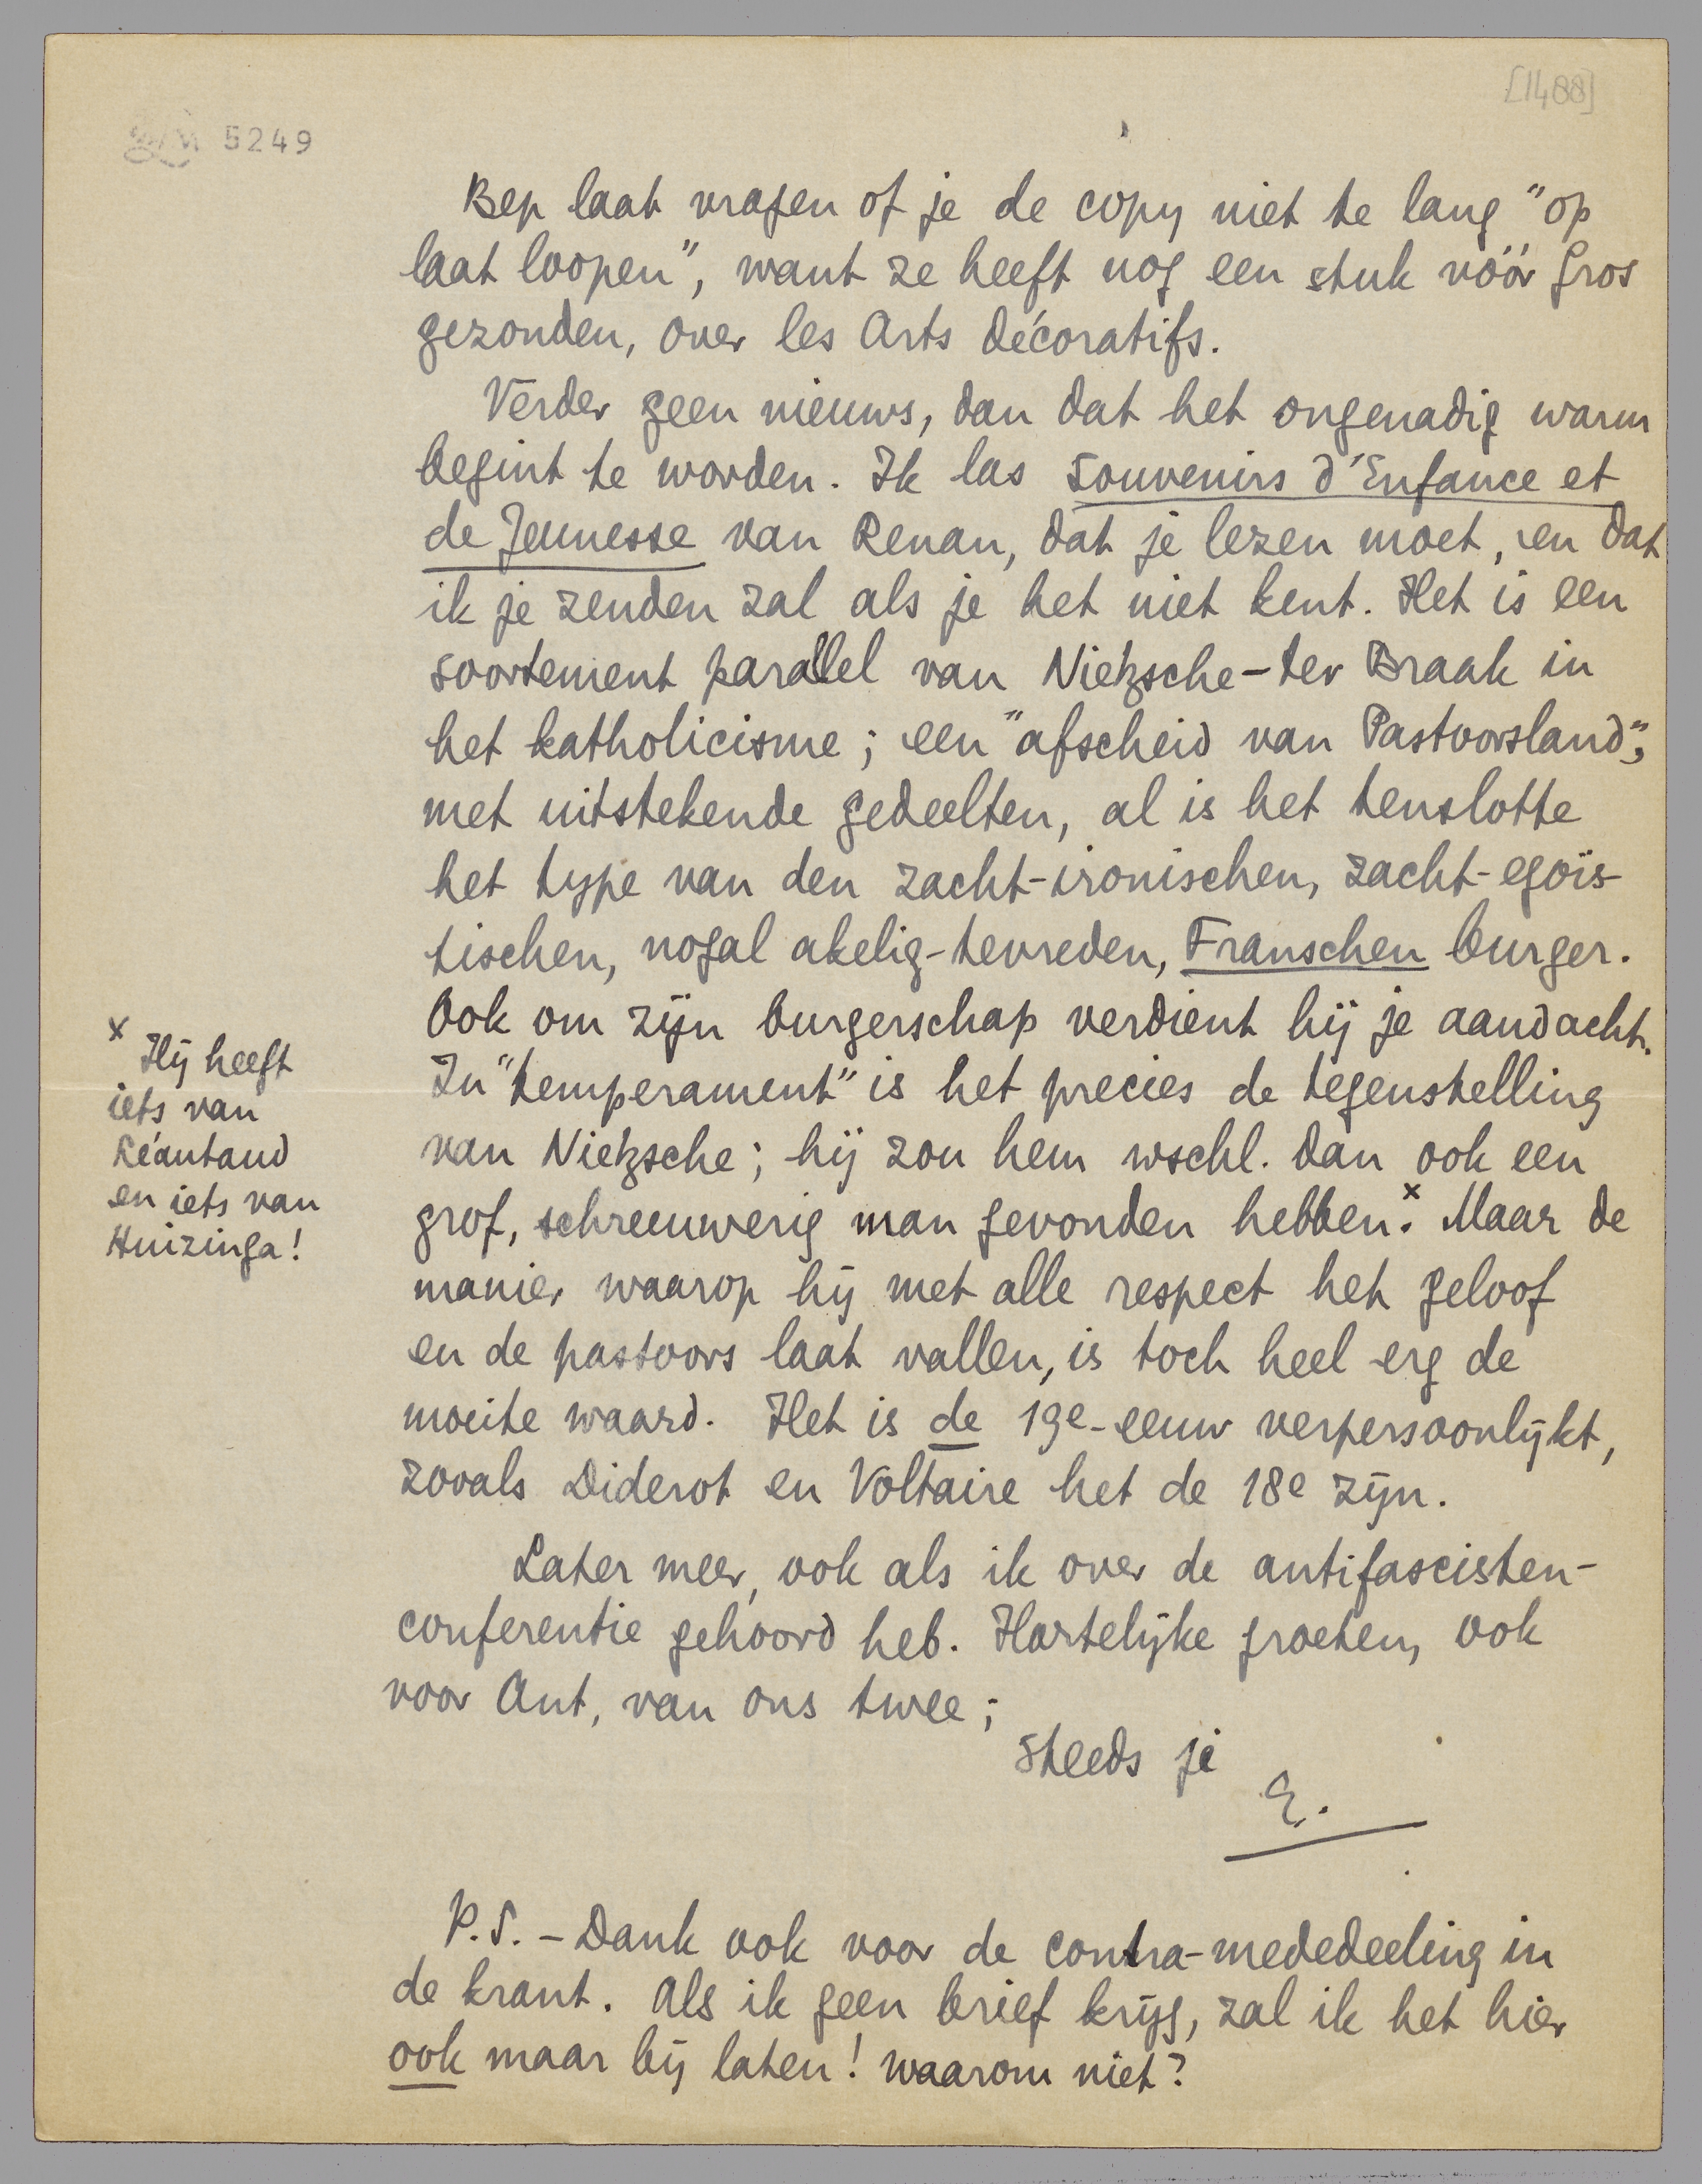 [1488]
5249
Bep laat vragen of je de copy niet te lang "op
laat loopen", want ze heeft nog een stuk vóór Gros
gezonden, over les Arts Décoratifs.
Verder geen nieuws, dan dat het ongenadig warm
begint te worden. Ik las Souvenirs d'Enfance et
de Jeunesse van Renan, dat je lezen moet, en dat
ik je zenden zal als je het niet kent. Het is een
soortement parallel van Nietzsche-ter Braak in
het katholicisme; een "afscheid van Pastoorsland",
met uitstekende gedeelten, al is het tenslotte
het type van den zacht-ironischen, zacht-egoïs-
tischen, nogal akelig-tevreden, Franschen burger.
Ook om zijn burgerschap verdient hij je aandacht.
In "temperament" is het precies de tegenstelling
van Nietzsche; hij zou hem wschl. dan ook een
grof, schreeuwerig man gevonden hebben.x Maar de
manier waarop hij met alle respect het geloof
en de pastoors laat vallen, is toch heel erg de
moeite waard. Het is de 19e-eeuw verpersoonlijkt,
zooals Diderot en Voltaire het de 18e zijn.
Later meer, ook als ik over de antifascisten-
conferentie gehoord heb. Hartelijke groeten, ook
voor Ant, van ons twee;
steeds je
E.
x Hij heeft
iets van
Léautaud
en iets van
Huizinga!
P.S. - Dank ook voor de contra-mededeeling in
de krant. Als ik geen brief krijg, zal ik het hier
ook maar bij laten! waarom niet?